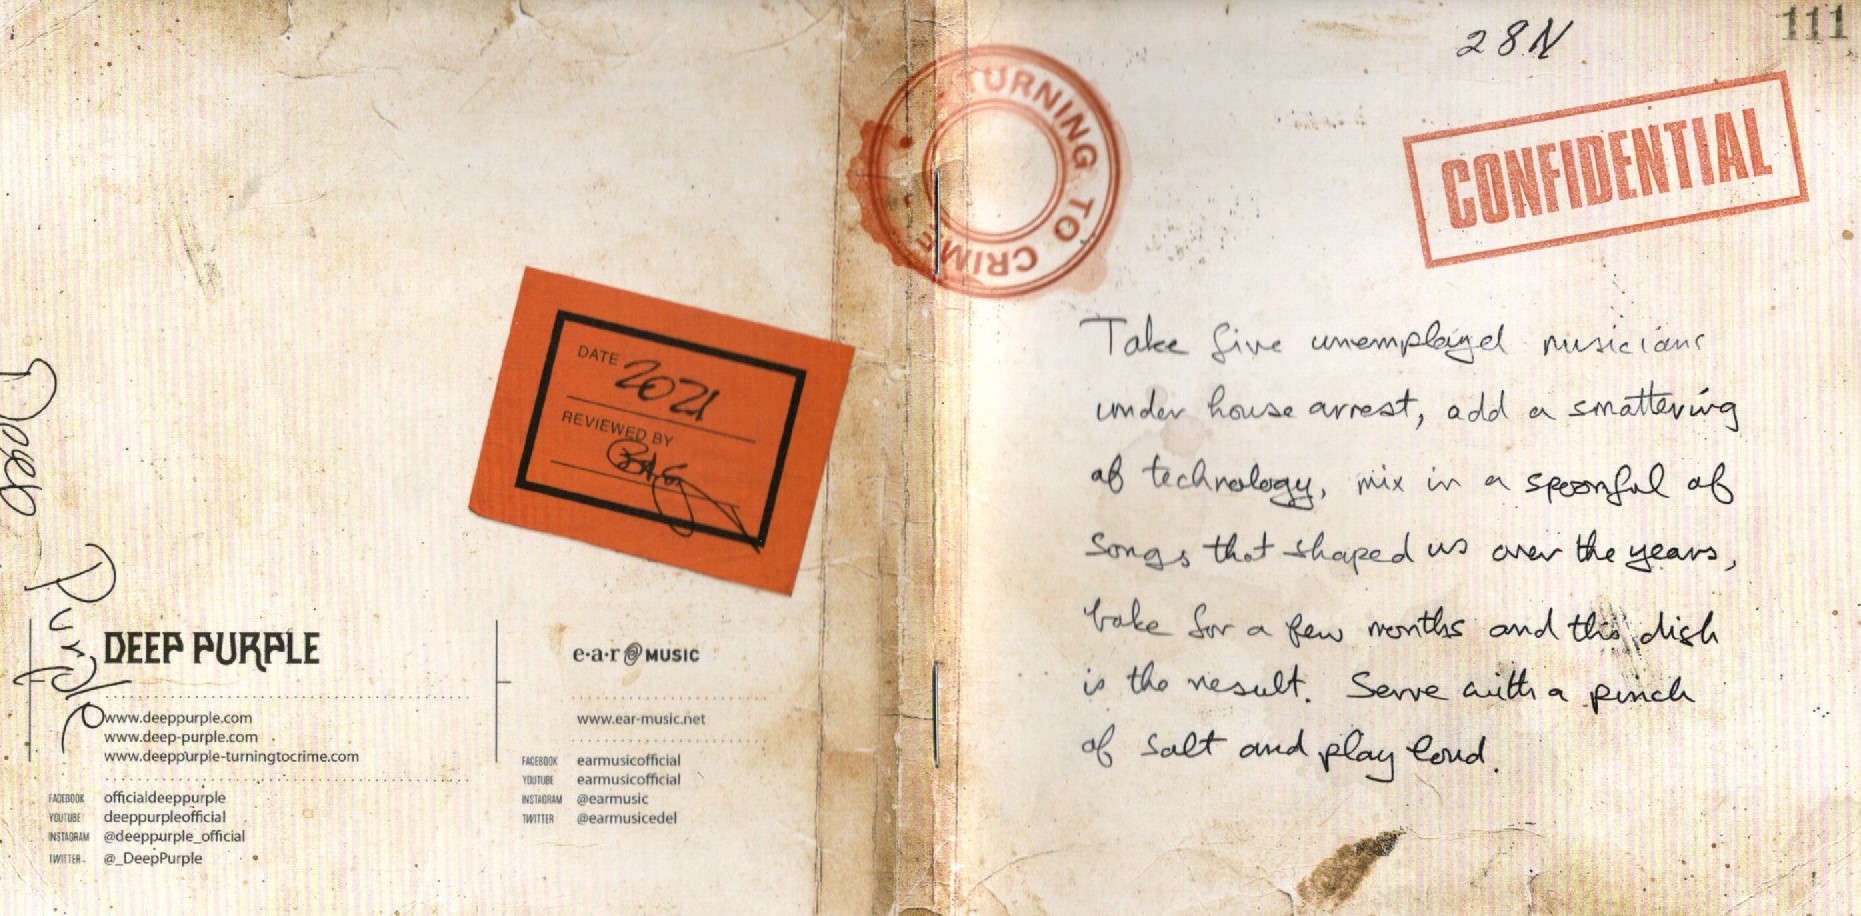 Deep
Purple
DATE 2021
REVIEWED BY
DEEP PURPLE
www.deeppurple.com
www.deep-purple.com
www.deeppurple-turningtocrime.com
FACEBOOK officialdeeppurple
YOUTUBE deeppurpleofficial
INSTAGRAM @deeppurple_official
TWITTER @_DeepPurple
e·a·r MUSIC
www.ear-music.net
FACEBOOK earmusicofficial
YOUTUBE earmusicofficial
INSTAGRAM @earmusic
TWITTER @earmusicedel
TURNING TO CRIME
28N
111
CONFIDENTIAL
Take five unemployed musicians
under house arrest, add a smattering
of technology, mix in a spoonful of
songs that shaped us over the years,
bake for a few months and this dish
is the result. Serve with a pinch
of salt and play loud.